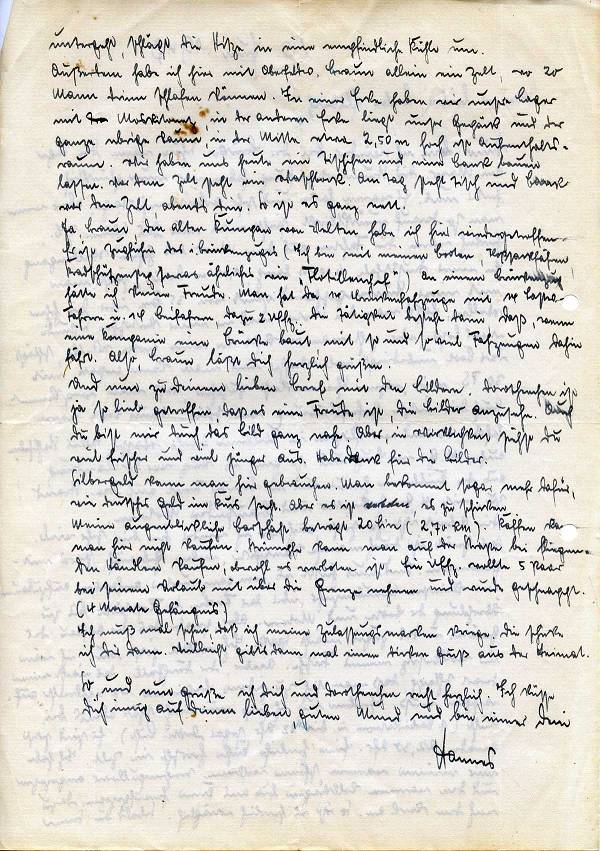 untergeht, schlägt die Hitze in eine empfindliche Kühle um.
Außerdem habe ich hier mit Oberfeldw. Braun allein ein Zelt, wo 20
Mann drin schlafen können. In einer Ecke haben wir unsere Lager
mit Moskitonetz, in der anderen Ecke liegt unser Gepäck und der
ganze übrige Raum, in der Mitte etwa 2,50 m hoch ist Aufenthalts-
raum. Wir haben uns heute ein Tischchen und eine Bank bauen
lassen. Vor dem Zelt steht ein Waschtisch. Am Tag steht Tisch und Bank
vor dem Zelt, abends drin. So ist es ganz nett.
Ja, Braun, den alten Kumpan von Welten habe ich hier wiedergetroffen.
Er ist Zugführer des 1. Brückenzuges (Ich bin mit meinen Booten,
so etwas ähnliches wie „Flotillenchef“) An einem Brückenzug
hätte ich keine Freude. Man hat da Brückenfahrzeuge mit
Fahrern u. Beifahrern, dazu 2 Uffz. Die Tätigkeit besteht darin daß, wenn
eine Kompanie eine Brücke baut mit so und so viel Fahrzeugen dahin
fährt. Also, Braun läßt Dich herzlich grüßen.
Und nun zu Deinem lieben Brief mit den Bildern. Dorothenchen ist
ja so lieb getroffen daß es eine Freude ist, die Bilder anzusehen. Auch
Du bist mir durch das Bild ganz nahe. Aber, in Wirklichkeit siehst Du
viel frischer und viel jünger aus. Habe Dank für die Bilder.
Silbergeld kann man hier gebrauchen. Man bekommt sogar mehr dafür,
wie deutsches Geld im Kurs steht. Aber es ist verboten, es zu schicken.
Meine augenblickliche Barschaft beträgt 20 Lire (2,70 RM). Kaffee kann
man hier nicht kaufen. Strümpfe kann man auf der Straße bei fliegen-
den Händlern kaufen, obwohl es verboten ist. Ein Uffz. wollte 5 Paar
bei seinem Urlaub mit über die Grenze nehmen und wurde geschnappt.
(4 Monate Gefängnis)
Ich muß mal sehen, daß ich meine Zulassungsmarken kriege. Die schicke
ich Dir dann. Vielleicht gibt's dann mal einen dicken Gruß aus der Heimat.
So und nun grüße ich Dich und Dorothenchen recht herzlich. Ich küsse
Dich innig auf Deinen lieben, guten Mund und bin immer Dein
Hannes